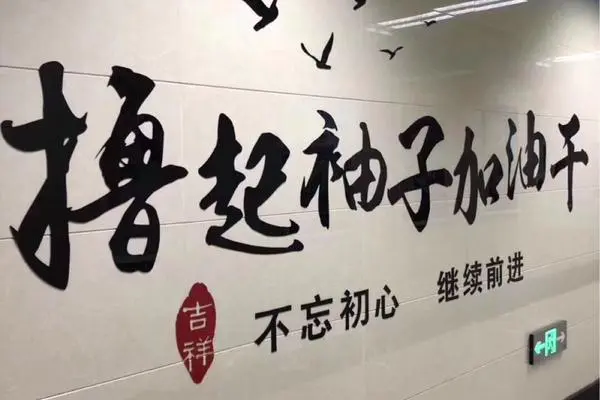 撸起袖子加油干
吉祥
不忘初心 继续前进